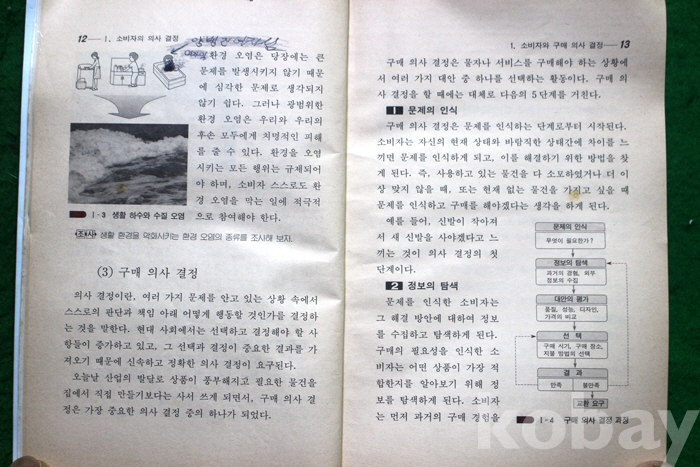 12 — Ⅰ. 소비자의 의사 결정
환경 오염은 당장에는 큰
문제를 발생시키지 않기 때문
에 심각한 문제로 생각되지
않기 쉽다. 그러나 광범위한
환경 오염은 우리와 우리의
후손 모두에게 치명적인 피해
를 줄 수 있다. 환경을 오염
시키는 모든 행위는 규제되어
야 하며, 소비자 스스로도 환
경 오염을 막는 일에 적극적
으로 참여해야 한다.
Ⅰ-3 생활 하수와 수질 오염
조사 생활 환경을 악화시키는 환경 오염의 종류를 조사해 보자.
(3) 구매 의사 결정
의사 결정이란, 여러 가지 문제를 안고 있는 상황 속에서
스스로의 판단과 책임 아래 어떻게 행동할 것인가를 결정하
는 것을 말한다. 현대 사회에서는 선택하고 결정해야 할 사
항들이 증가하고 있고, 그 선택과 결정이 중요한 결과를 가
져오기 때문에 신속하고 정확한 의사 결정이 요구된다.
오늘날 산업의 발달로 상품이 풍부해지고 필요한 물건을
집에서 직접 만들기보다는 사서 쓰게 되면서, 구매 의사 결
정은 가장 중요한 의사 결정 중의 하나가 되었다.
1. 소비자와 구매 의사 결정 — 13
구매 의사 결정은 물자나 서비스를 구매해야 하는 상황에
서 여러 가지 대안 중 하나를 선택하는 활동이다. 구매 의
사 결정을 할 때에는 대체로 다음의 5단계를 거친다.
1 문제의 인식
구매 의사 결정은 문제를 인식하는 단계로부터 시작된다.
소비자는 자신의 현재 상태와 바람직한 상태간에 차이를 느
끼면 문제를 인식하게 되고, 이를 해결하기 위한 방법을 찾
게 된다. 즉, 사용하고 있는 물건을 다 소모하였거나 더 이
상 맞지 않을 때, 또는 현재 없는 물건을 가지고 싶을 때
문제를 인식하고 구매를 해야겠다는 생각을 하게 된다.
예를 들어, 신발이 작아져
서 새 신발을 사야겠다고 느
끼는 것이 의사 결정의 첫
단계이다.
2 정보의 탐색
문제를 인식한 소비자는
그 해결 방안에 대하여 정보
를 수집하고 탐색하게 된다.
구매의 필요성을 인식한 소
비자는 어떤 상품이 가장 적
합한지를 알아보기 위해 정
보를 탐색하게 된다. 소비자
는 먼저 과거의 구매 경험을
문제의 인식
무엇이 필요한가?
정보의 탐색
과거의 경험, 외부
정보의 수집
대안의 평가
품질, 성능, 디자인,
가격의 비교
선 택
구매 시기, 구매 장소,
지불 방법의 선택
결 과
만족 불만족
교환 요구
Ⅰ-4 구매 의사 결정 과정
kobay